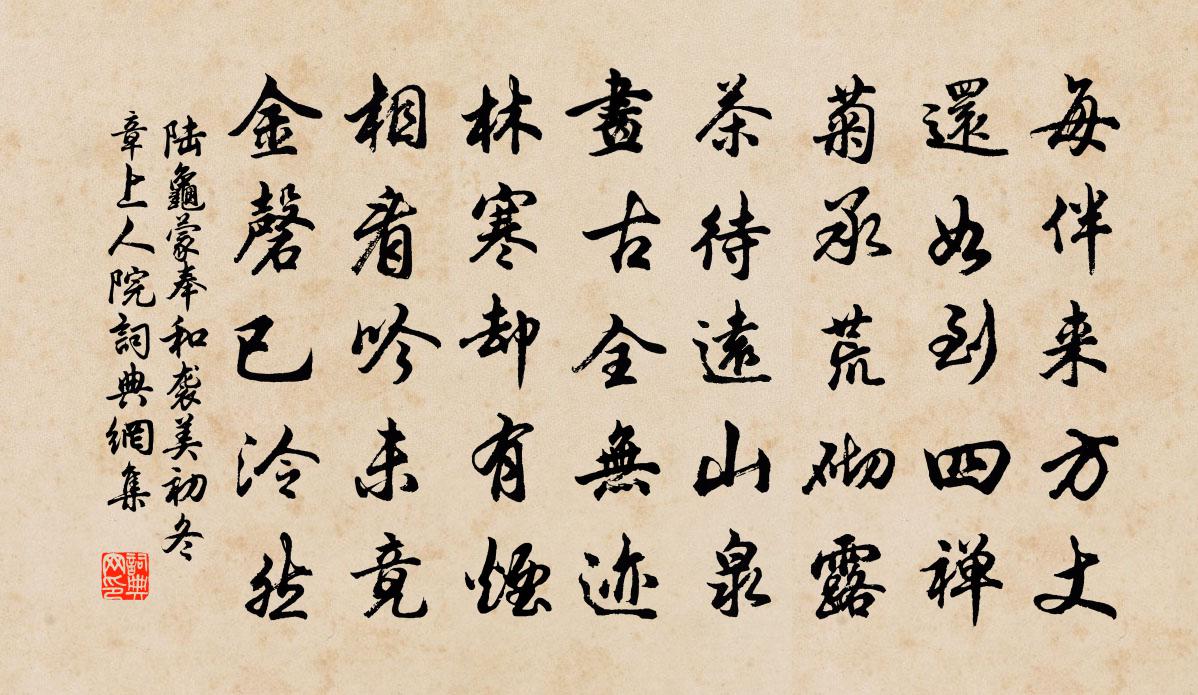 每伴来方丈
還如到四禅
菊承荒砌露
茶待遠山泉
畫古全無迹
林寒却有煙
相看吟未竟
金磬已泠然
陆龜蒙奉和袭美初冬
章上人院詞典網集
詞典
网印